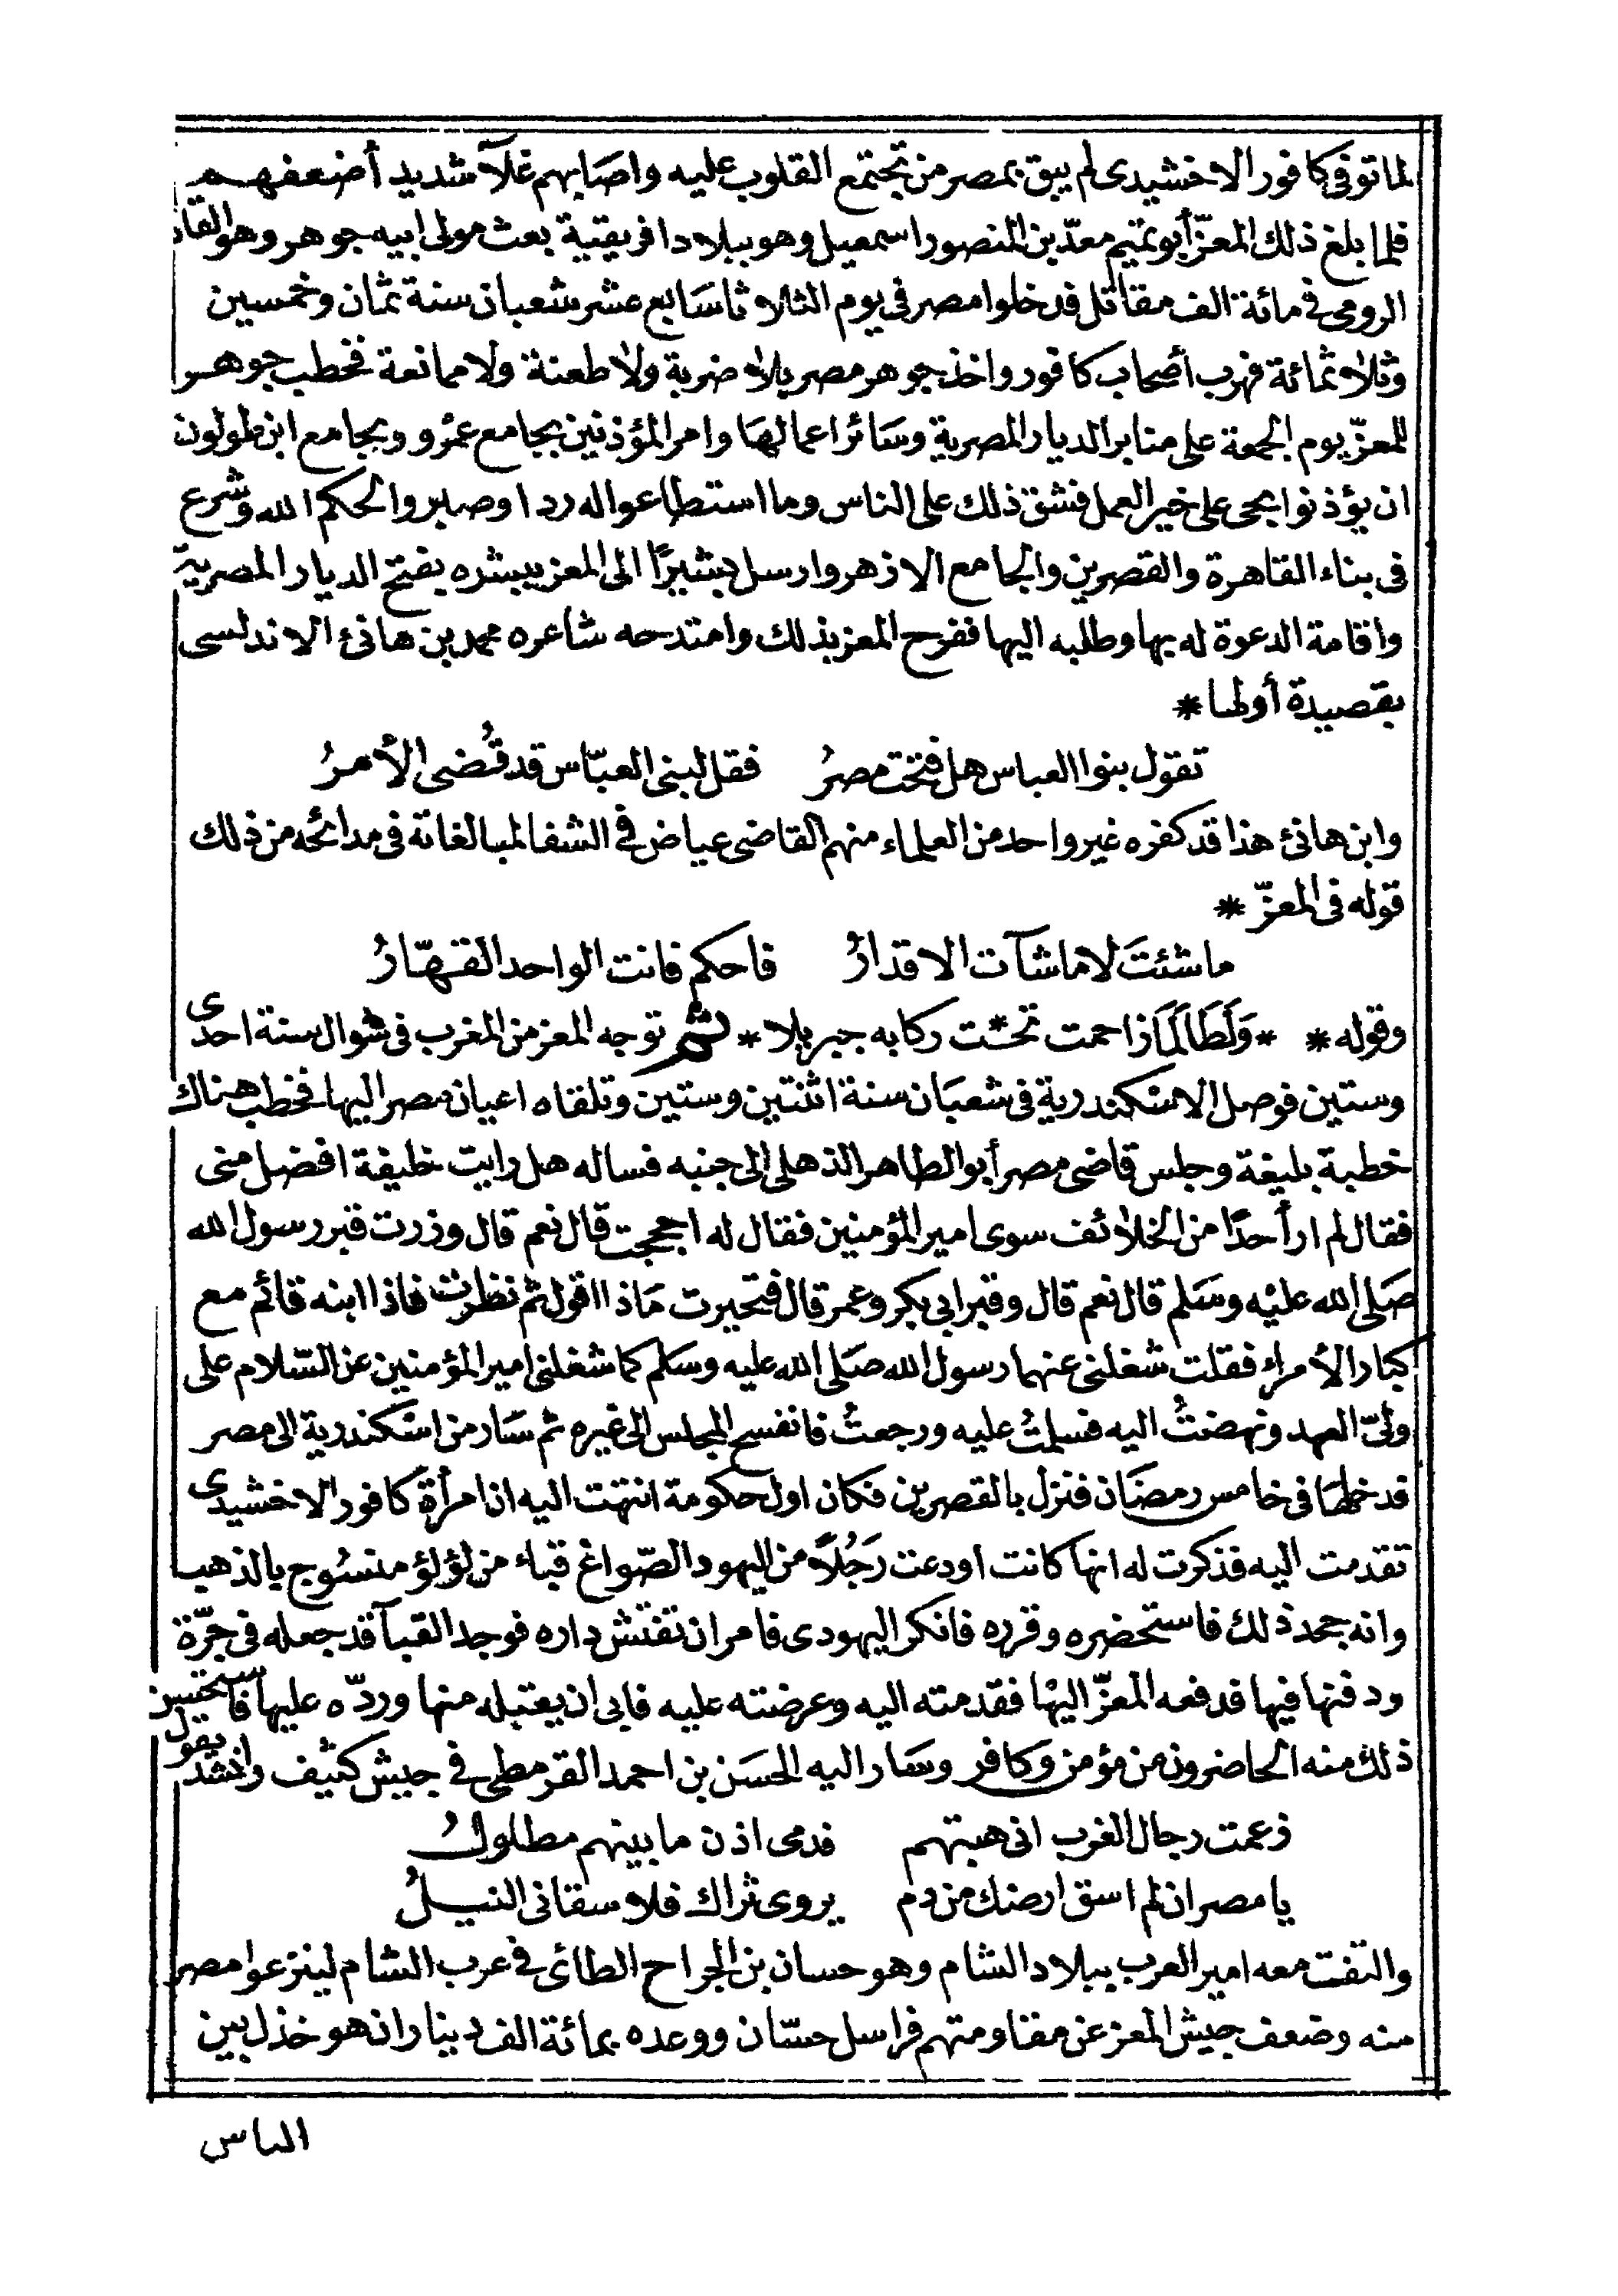 لما توفى كافور الاخشيدى لم يبق بمصر من تجتمع القلوب عليه واصابهم غلآ شديد أضعفهم
فلما بلغ ذلك المعزّ أبو تميم معدّ بن المنصور اسمعيل وهو ببلاد افريقية بعث مولى ابيه جوهر وهو القائد
الرومى فى مائة الف مقاتل فدخلوا مصر فى يوم الثلاثا سابع عشر شعبان سنة ثمان وخمسين
وثلاثمائة فهرب أصحاب كافور واخذ جوهر مصر بلا ضربة ولا طعنة ولا ممانعة فخطب جوهر
للمعزّ يوم الجمعة على منابر الديار المصرية وسائر اعمالها وامر المؤذنين بجامع عمرو وبجامع ابن طولون
ان يؤذنوا بحى على خير العمل فشق ذلك على الناس وما استطاعوا له ردا وصبروا لحكم الله وشرع
فى بناء القاهرة والقصرين والجامع الازهر وارسل بشيرًا الى المعز يبشره بفتح الديار المصرية
واقامة الدعوة له بها وطلبه اليها ففرح المعز بذلك وامتدحه شاعره محمد بن هانئ الاندلسى
بقصيدة أولها *
تقول بنوا العباس هل فتحت مصرُ فقل لبنى العبّاس قد قُضى الأمرُ
وابن هانئ هذا قد كفره غير واحد من العلماء منهم القاضى عياض فى الشفا لمبالغاته فى مدائحه من ذلك
قوله فى المعزّ *
ما شئتَ لا ما شآت الاقدارُ فاحكم فانت الواحد القهّارُ
وقوله * * وَلَطَالَمَا زاحمت تحت ركابه جبريلا * ثم توجه المعز من المغرب فى شوال سنة احدى
وستين فوصل الاسكندرية فى شعبان سنة اثنتين وستين وتلقاه اعيان مصر اليها فخطب هناك
خطبة بليغة وجلس قاضى مصر أبو الطاهر الذهلى الى جنبه فساله هل رايت خليفة افضل منى
فقال لم ار أحدًا من الخلائف سوى امير المؤمنين فقال له احججت قال نعم قال وزرت قبر رسول الله
صَلى الله عليْه وسَلم قال نعم قال وقبر ابى بكر وعمر قال فتحيرت مَاذا اقول ثم نظرت فاذا ابنه قائم مع
كبار الأمراء فقلت شغلنى عنهما رسول الله صَلى الله عليه وسَلم كما شغلنى امير المؤمنين عن السّلام على
ولىّ العهد ونهضتُ اليه فسلمتُ عليه ورجعتُ فانفسح المجلس الى غيره ثم سَار من اسكندرية الى مصر
فدخلها فى خامس رمضَان فنزل بالقصرين فكان اول حكومة انتهت اليه ان امرأة كافور الاخشيدى
تقدمت اليه فذكرت له انها كانت اودعت رَجُلاً من اليهود الصّواغ قباء من لؤلؤ منسُوج بالذهب
وانه جحد ذلك فاستحضره وقرره فانكر اليهودى فامر ان تفتش داره فوجد القبآ قد جعله فى جَرّة
ودفنها فيها فدفعه المعزّ اليْها فقدمته اليه وعرضته عليه فابى ان يقبله منها وردّه عليها فاستحسن
ذلك منه الحاضرون من مؤمن وكافر وسَار اليه الحسَن بن احمد القرمطى فى جيش كثيف وانشد يقول
زعمت رجال الغرب انى هبتهم فدمى اذن ما بينهم مطلولُ
يا مصر ان لم اسق ارضك من دم يروى ثراك فلا سقانى النيلُ
والتفت معه امير العرب ببلاد الشام وهو حسان بن الجراح الطائى فى عرب الشام لينزعوا مصر
منه وضعف جيش المعز عن مقاومتهم فراسل حسّان ووعده بمائة الف دينار ان هو خذل بين
الناس